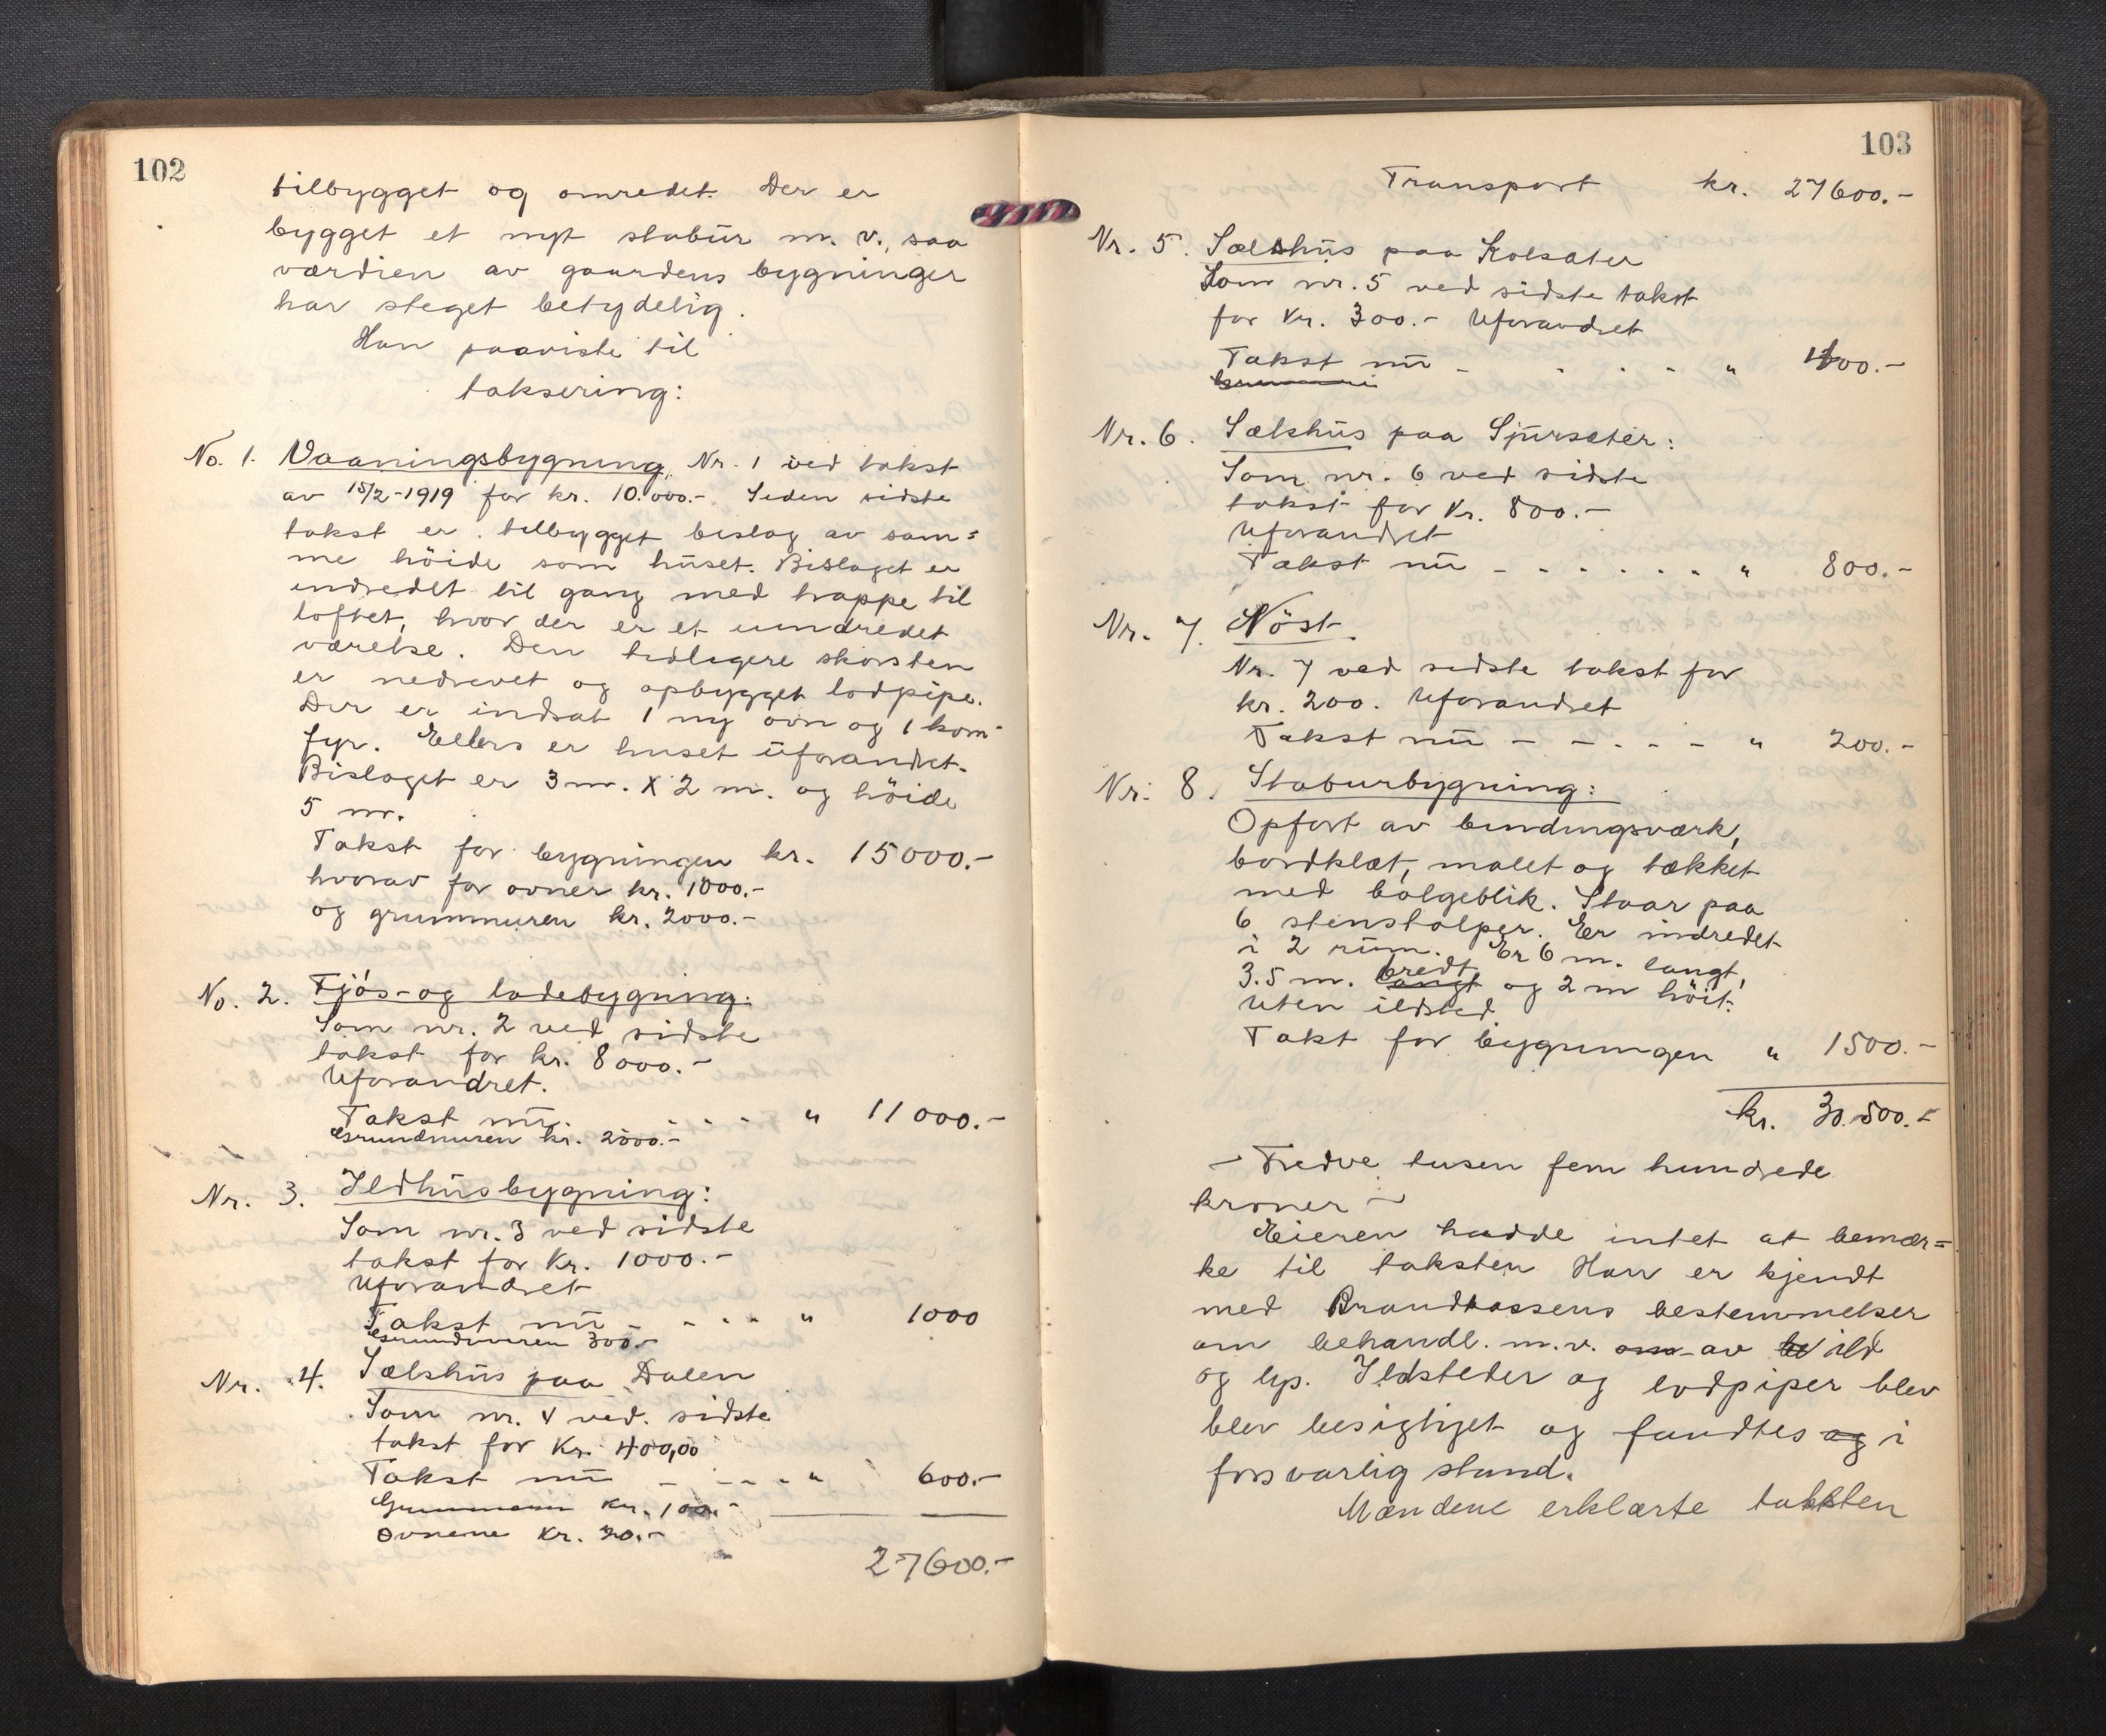 102
tilbygget og omredet. Der er
bygget et nyt stabur m. v., saa
værdien av gaardens bygninger
har steget betydelig.
Han paaviste til
taksering:
No. 1. Vaaningsbygning, Nr. 1 ved takst
av 15/2-1919 for kr. 10.000.- Siden sidste
takst er tilbygget beslag av sam=
me höide som huset. Bislaget er
indredet til gang med trappe til
loftet, hvor der er et uindredet
værelse. Den tidligere skorsten
er nedrevet og opbygget lodpipe.
Der er indsat 1 ny ovn og 1 kom-
fyr. Ellers er huset uforandret.
Bislaget er 3 m. x 2 m. og höide
5 m.
Takst for bygningen kr. 15000.-
hvorav for ovner kr. 1000.-
og grunmuren kr. 2000.-
No. 2. Fjös- og ladebygning:
Som nr. 2 ved sidste
takst for kr. 8000.-
Uforandret.
Takst nu. - - - " 11000.-
Grundmuren kr. 2000.-
Nr. 3. Ildhusbygning:
Som nr. 3 ved sidste
takst for Kr. 1000.-
Uforandret
Takst nu - - - - " 1000
Grundmuren 300.-
Nr. 4. Sælshus paa Dalen
Som nr. 4 ved. sidste
takst for Kr. 400,00
Takst nu - - - - " 600.-
Grunmuren Kr. 100.-
Ovnene Kr. 20.-
27600.-
103
Transport kr. 27600.-
Nr. 5. Sælshus paa Kolsæter
Som nr. 5 ved sidste takst
for Kr. 300.- Uforandret
Takst nu - - - - - " 400.-
Nr. 6. Sælshus paa Sjursæter:
Som nr. 6 ved sidste
takst for Kr. 800.-
Uforandret
Takst nu - - - - - - " 800.-
Nr. 7. Nöst.
Nr. 7 ved sidste takst for
kr. 200. Uforandret
Takst nu - - - - - " 200.-
Nr. 8. Staburbygning:
Opfört av bindingsværk,
bordklæt, malet og tækket
med bølgeblik. Staar paa
6 stenstolper. Er indredet
i 2 rum. Er 6 m. langt,
3.5 m. bredt langt og 2 m höit.
Uten ildsted
Takst for bygningen " 1500.-
kr. 30.500.-
- Tredve tusen fem hundrede
kroner -
Eieren hadde intet at bemær=
ke til taksten Han er kjendt
med Brandkassens bestemmelser
om behandl. m.v. om av ild
og lys. Ildsteder og lodpiper blev
blev besigtiget og fandtes og i
forsvarlig stand.
Mændene erklærte taksten